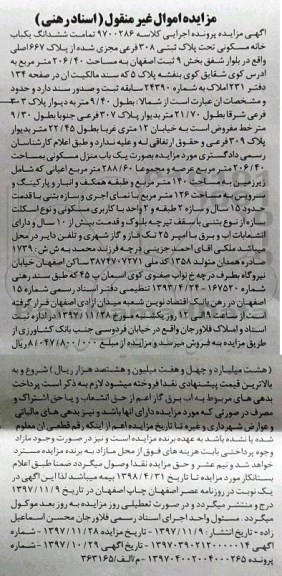 مزایده اموال غیر منقول (اسناد رهنی)
آگهی مزایده پرونده اجرایی کلاسه ۹۷۰۰۲۸۶ تمامت ششدانگ یکباب
خانه مسکونی تحت پلاک ثبتی ۳۰۸ فرعی مجزی شده از پلاک ۶۶۷ اصلی
واقع در بلوار شفق بخش ۹ ثبت اصفهان به مساحت ۲۰۶/۴۰ متر مربع به
آدرس کوی شقایق کوی بنفشه پلاک ۵ که سند مالکیت آن در صفحه ۱۳۴
دفتر ۲۳۱ املاک به شماره ۲۴۳۹۰ سابقه ثبت و صدور سند دارد و حدود
و مشخصات آن عبارت است از شمالا: بطول ۹/۴۰ متر به دیوار پلاک ۳۰۳
فرعی شرقا بطول ۲۱/۷۰ متر بدیوار پلاک ۳۰۷ فرعی جنوبا بطول ۹/۳۰
متر خط مفروض است به خیابان ۱۲ متری غربا بطول ۲۲/۴۵ متر بدیوار
پلاک ۳۰۹ فرعی و حقوق ارتفاقی له و علیه ندارد و طبق اعلام کارشناسان
رسمی دادگستری مورد مزایده بصورت یک باب منزل مسکونی بمساحت
۲۰۶/۴۰ متر مربع عرصه و مجموعا ۲۸۸/۶۰ متر مربع اعیانی که شامل
زیرزمین به مساحت ۱۴۰ متر مربع و طبقه همکف و انبار و پارکینگ و
سرویس به مساحت ۱۲۶ متر مربع با نمای آجری و سازه بتنی با قدمت
حدود ۱۵ سال و سازه ۲ طبقه و ۲ واحد با کاربری مسکونی و نوع اسکلت
سازه از نوع بتنی با سقف تیرچه بلوک و قدمت بیش از ۱۰ سال و دارای
انشعابات آب و برق با آمپر ۲۵ تک فاز و گاز شهری و تلفن دایر در محل
میباشد ملکی آقای احمد جزینی درچه فرزند محمد به ش ش: ۱۷۳۹
صادره همدان متولد ۱۳۵۸ کد ملی ۳۸۷۴۷۰۷۲۷۱ ساکن اصفهان خیابان
نیروگاه بطرف درچه خ نواب صفوی کوی آسمان پ ۴۵ که طبق سند رهنی
شماره ۱۶۷۵۲۰ - ۱۳۹۳/۴/۲۴ تنظیمی دفتر اسناد رسمی شماره ۱۵
اصفهان در رهن بانک اقتصاد نوین شعبه میدان آزادی اصفهان قرار گرفته
است از ساعت ۹ الی ۱۲ روز یکشنبه مورخ ۱۳۹۷/۱۱/۲۸ در اداره ثبت
اسناد و املاک فلاورجان واقع در خیابان فردوسی جنب بانک کشاورزی از
طریق مزایده به فروش میرسد و مزایده از مبلغ ۸/۰۴۷/۸۰۰/۰۰۰ ریال
(هشت میلیارد و چهل و هفت میلیون و هشتصد هزار ریال) شروع و به
بالاترین قیمت پیشنهادی نقدا فروخته میشود لازم به ذکر است پرداخت
بدهی های مربوط به آب برق گاز اعم از حق انشعاب و یا حق اشتراک و
مصرف در صورتی که مورد مزایده دارای آنها باشد و نیز بدهی های مالیاتی
و عوارض شهرداری و غیره تا تاریخ مزایده اعم از اینکه رقم قطعی آن معلوم
شده یا نشده باشد به عهده برنده مزایده است و نیز در صورت وجود مازاد
وجوه پرداختی بابت هزینه های فوق از محل مازاد به برنده مزایده مسترد
خواهد شد و نیم عشر و حق مزایده نقدا وصول میگردد ضمنا طبق اعلام
بستانکار مورد مزایده تا تاریخ ۱۳۹۸/۴/۳۱ بیمه میباشد لذا این آگهی در
یک نوبت در روزنامه عصر اصفهان چاپ اصفهان در تاریخ ۱۳۹۷/۱۱/۹
درج و منتشر میگردد و در صورت تعطیلی روز مزایده به روز بعد موکول
میگردد. مسئول واحد اجرای اسناد رسمی فلاورجان محسن اسماعیل
زاده - تاریخ انتشار: ۱۳۹۷/۱۱/۹ - تاریخ مزایده ۱۳۹۷/۱۱/۲۸ - شماره
آگهی ۱۳۹۷۰۳۹۰۲۱۳۰۰۰۰۱۴ - تاریخ آگهی ۱۳۹۷/۱۰/۲۹ - شماره
پرونده ۱۳۹۷۰۴۰۰۲۰۰۴۰۰۰۲۶۵ - م/الف/ ۳۶۳۱۶۵